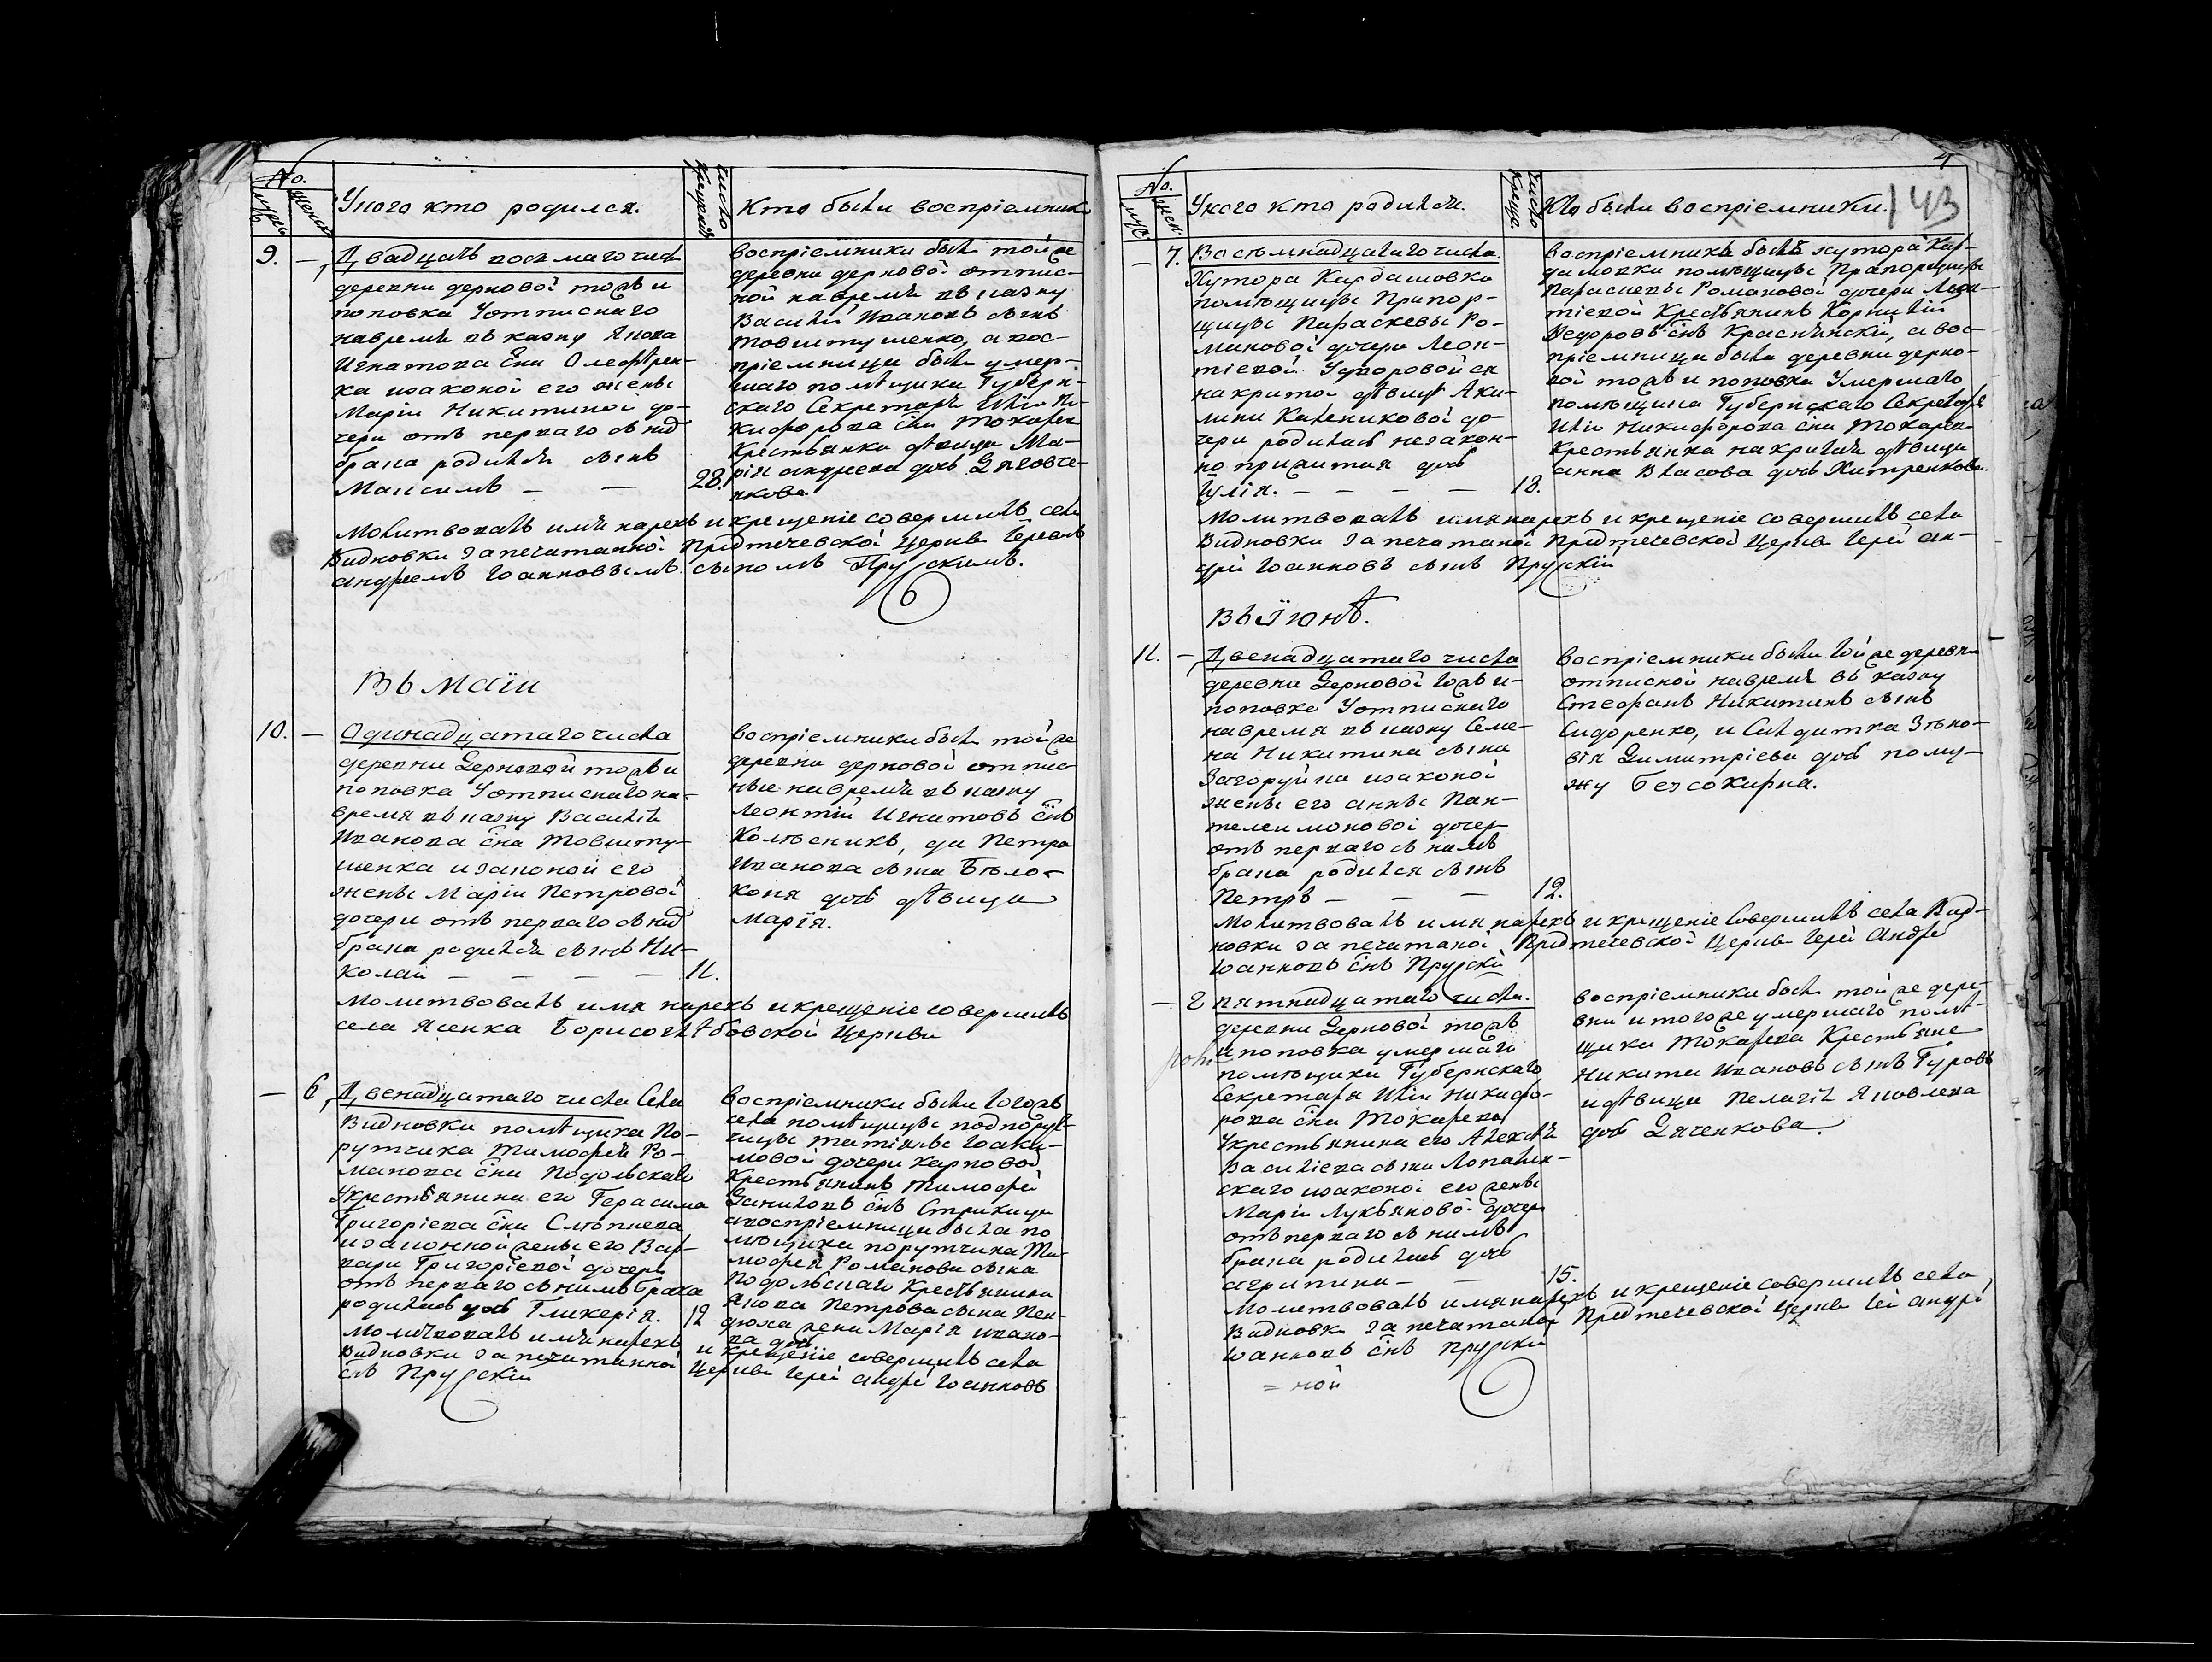 No.
мужь
женск
У кого кто родился.
число крещенія
Кто были воспріемники
9. —
Двадцать восьмаго числа
деревни дерновой тожъ и
поповка Уотписнаго
навремя въ казну Якова
Игнатова сна Олефѣрен-
ка изаконой его жены
Маріи Никитиной до-
чери отъ перваго сънид
брака родился сынъ
Максимъ — — 28.
воспріемники были тойже
деревни дерновой отпис-
ной навремя въ казну
Василій Ивановъ сынъ
Товштушенко, а вос-
пріемница была умер-
шаго помѣщика Губерн-
скаго Секретаря Иліи Ни-
кифорова сна Токарева
Крестьянка дѣвица Ма-
рія андреева дочь Дяговче-
нкова.
Молитвовалъ имя нарекъ и крещеніе совершилъ села
Видновки Запечатанной Предтечевской Церкви Іереемъ
андреемъ Іоанновымъ сыномъ Прускимъ.
6
Въ маіи
10. —
Одинадцатаго числа
деревни Дерновой тожъ и
поповка Уотписнаго на-
время въ казну Василія
Иванова сна Товшту-
шенка изаконой его
жены Маріи Петровой
дочери отъ перваго сънид
брака родился сынъ Ни-
колай — — — — 11.
воспріемники были тойже
деревни дерновой отпис-
ные навремя въ казну
Леонтій Игнатовъ снъ
Колѣсникъ, да Петра
Иванова сына Бѣло-
коня дочь дѣвица
Марія.
Молитвовалъ имя нарекъ и крещеніе совершилъ
села Ясенка Борисоглѣбовской Церкви
— 6,
Двенадцатаго числа Села
Видновки помѣщика По-
рутчика Тимофея Ро-
манова сна Подольскаго
Укрестьянина его Герасима
Григоріева сна Слѣпнева
изаконной жены его Вар-
вари Григоріевой дочери
отъ перваго съ нимъ брака
родилась дочь Гликерія. 12
воспріемники были тогожъ
села помѣщицы подпорут-
чицы татіяны Іоаки-
мовой дочери Карповой
Крестьянинъ Тимофей
Даниловъ снъ Стрижица
авоспріемница была по
мѣщика порутчика Ти-
мофея Романова сына
Подольскаго Крестьянина
Якова Петрова сына Пен-
дюха жена Марія ивано-
ва дочь
Молитвовалъ имя нарекъ и крещеніе совершилъ села
Видновки Запечатанной Церкви Іерей андрей Іоанновъ
снъ Прускій
4
143
No.
муж
жен
Укого кто родился.
число креще
Кто были воспріемники.
— 7.
Восѣмнадцатаго числа.
Хутора Кардашовка
помѣщицы Прапор-
щицы Параскевы Ро-
мановой дочери Леон-
тіевой Удворовой ея
накритой дѣвицы Аки-
лини Калениковой до-
чери родилась незакон-
но прижитая дочь
Іулія. — — — — 18.
воспріемникъ былъ хутора Кар-
дашовки помѣщицы Прапорщицы
Параскевы Романовой дочери Леон-
тіевой Крестьянинъ Корнилій
Федоровъ снъ Краснянскій, авос-
пріемница была деревни дерно-
вой тожъ и поповка Умершаго
помѣщика Губернскаго Секретаря
Иліи Никифорова сна Токарева
Крестьянка накритая дѣвица
анна Власова дочь Хитренкова.
Молитвовалъ имянарекъ и крещеніе совершилъ села
Видновки Запечатаной Предтечевской Церкви Іерей ан-
дрей Іоанновъ сынъ Прускій
Въ Іюнѣ.
11. —
Двенадцатаго числа
деревни Дерновой тожъ и-
поповка Уотписнаго
навремя въ казну Семе-
на Никитина сына
Загоруйка изаконой
жены его анны Пан-
телеимоновой дочер
отъ перваго съ нимъ
брака родился сынъ
Петръ — — — 12.
воспріемники были тойже деревни
отписной навремя въ казну
Стефанъ Никитинъ сынъ
Сидоренко, и Салдатка Зѣно-
вія Димитріева дочь пому-
жу Безсокирна.
Молитвовалъ имя нарекъ и крещеніе совершилъ села Вид-
новки запечатаной Предтечевской Церкви Іерей Андрей
Іоанновъ снъ Прускій
— 8
пятнадцатаго числа.
деревни Дерновой тожъ
ипоповка умершаго
помѣщика Губернскаго
Секретаря Иліи Никифо-
рова сна Токарева
Укрестьянина его Алексѣя
Василіева сына Лопатин-
скаго изаконой его жены
Маріи Лукьяновой дочери
отъ перваго съ нимъ
брака родилась дочь
агрипина — — 15.
воспріемники были тойже дере-
вни итогоже умершаго помѣ-
щика Токарева Крестьяне
Никита Ивановъ сынъ Гуровъ
идѣвица Пелагія Яковлева
дочь Дяченкова.
Молитвовалъ имянарекъ и крещеніе совершилъ села
Видновк запечатано Предтечевской Церкви Іей андрей
Іоанновъ снъ Прускій
= ной